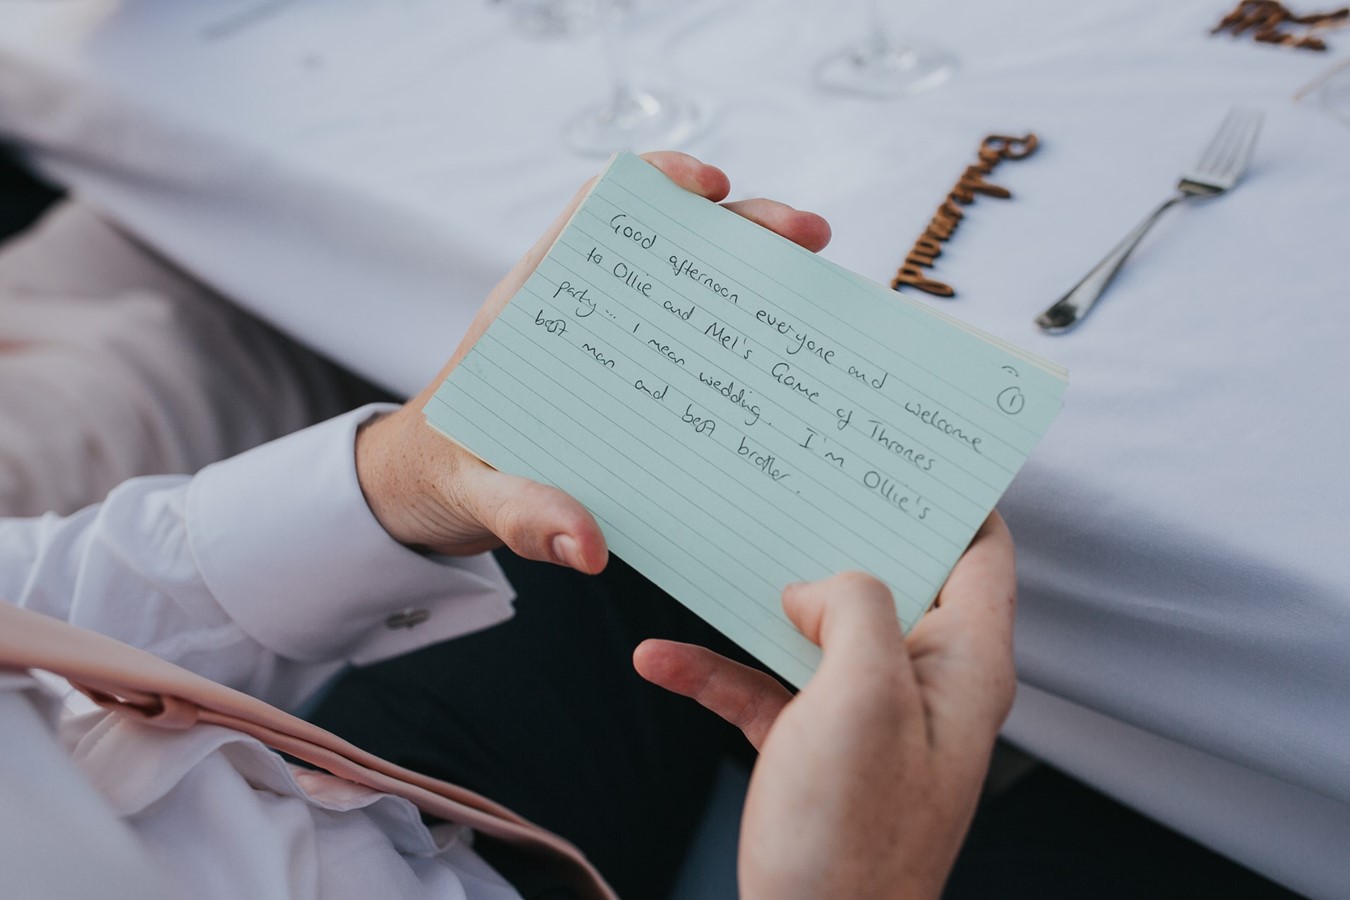 ①
Good afternoon everyone and welcome
to Ollie and Mel's Game of Thrones
party... I mean wedding. I'm Ollie's
best man and best brother.